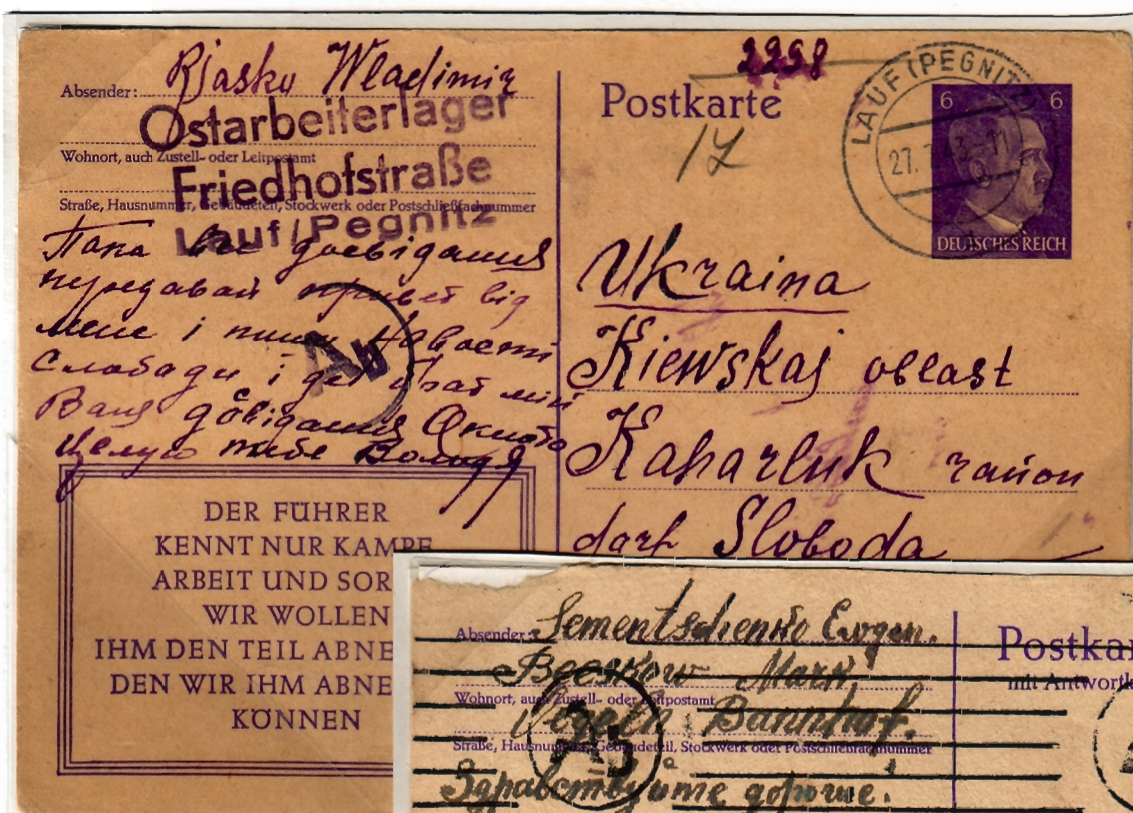 2298
Absender: Rjasko Wladimir
Ostarbeiterlager
Wohnort, auch Zustell- oder Leitpostamt
Friedhofstraße
Straße, Hausnummer, Gebäudeteil, Stockwerk oder Postschließfachnummer
Lauf/Pegnitz
Папа досвіданія
передавай привет від
мене і пиши новости
Слободи і де брат мій
Ваня досвіданія
Целую тебе Володя
Au
DER FÜHRER
KENNT NUR KAMPF
ARBEIT UND SOR
WIR WOLLEN
IHM DEN TEIL ABNE
DEN WIR IHM ABNE
KÖNNEN
Postkarte
LAUF (PEGNITZ)
27.
6 6
DEUTSCHES REICH
Ukraina
Kiewskaj oblast
Kaharluk raйon
dorf Sloboda
Absender: Sementschenko Ewgen.
Beeskow Mark
Wohnort, auch Zustell- oder Leitpostamt
Straße, Hausnummer, Gebäudeteil, Stockwerk oder Postschließfachnummer
Здравствуйте дорогие.
Postkar
mit Antwortk